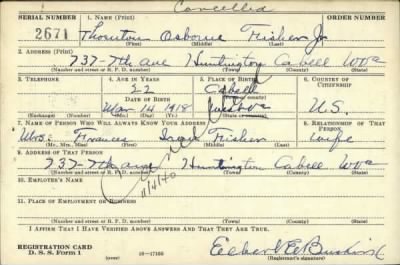 Cancelled
SERIAL NUMBER 1. NAME (Print) ORDER NUMBER
2671 Thornton Osborne Fisher Jr
(First) (Middle) (Last)
2. ADDRESS (Print)
737-7th ave Huntington Cabell WVa
(Number and street or R. F. D. number) (Town) (County) (State)
3. TELEPHONE 4. AGE IN YEARS 5. PLACE OF BIRTH 6. COUNTRY OF CITIZENSHIP
22 Cabell
DATE OF BIRTH (Town or county)
Mar 14 1918 U.S.
(Exchange) (Number) (Mo.) (Day) (Yr.) (State or country)
7. NAME OF PERSON WHO WILL ALWAYS KNOW YOUR ADDRESS 8. RELATIONSHIP OF THAT PERSON
Mrs. Frances Fisher wife
(Mr., Mrs., Miss) (First) (Middle) (Last)
9. ADDRESS OF THAT PERSON
737-7th ave Huntington Cabell WVa
(Number and street or R. F. D. number) (Town) (County) (State)
10. EMPLOYER'S NAME
Cancelled
11/4/40
11. PLACE OF EMPLOYMENT OR BUSINESS
(Number and street or R. F. D. number) (Town) (County) (State)
I AFFIRM THAT I HAVE VERIFIED ABOVE ANSWERS AND THAT THEY ARE TRUE.
REGISTRATION CARD
D. S. S. Form 1 16-17105
(Registrar's signature)